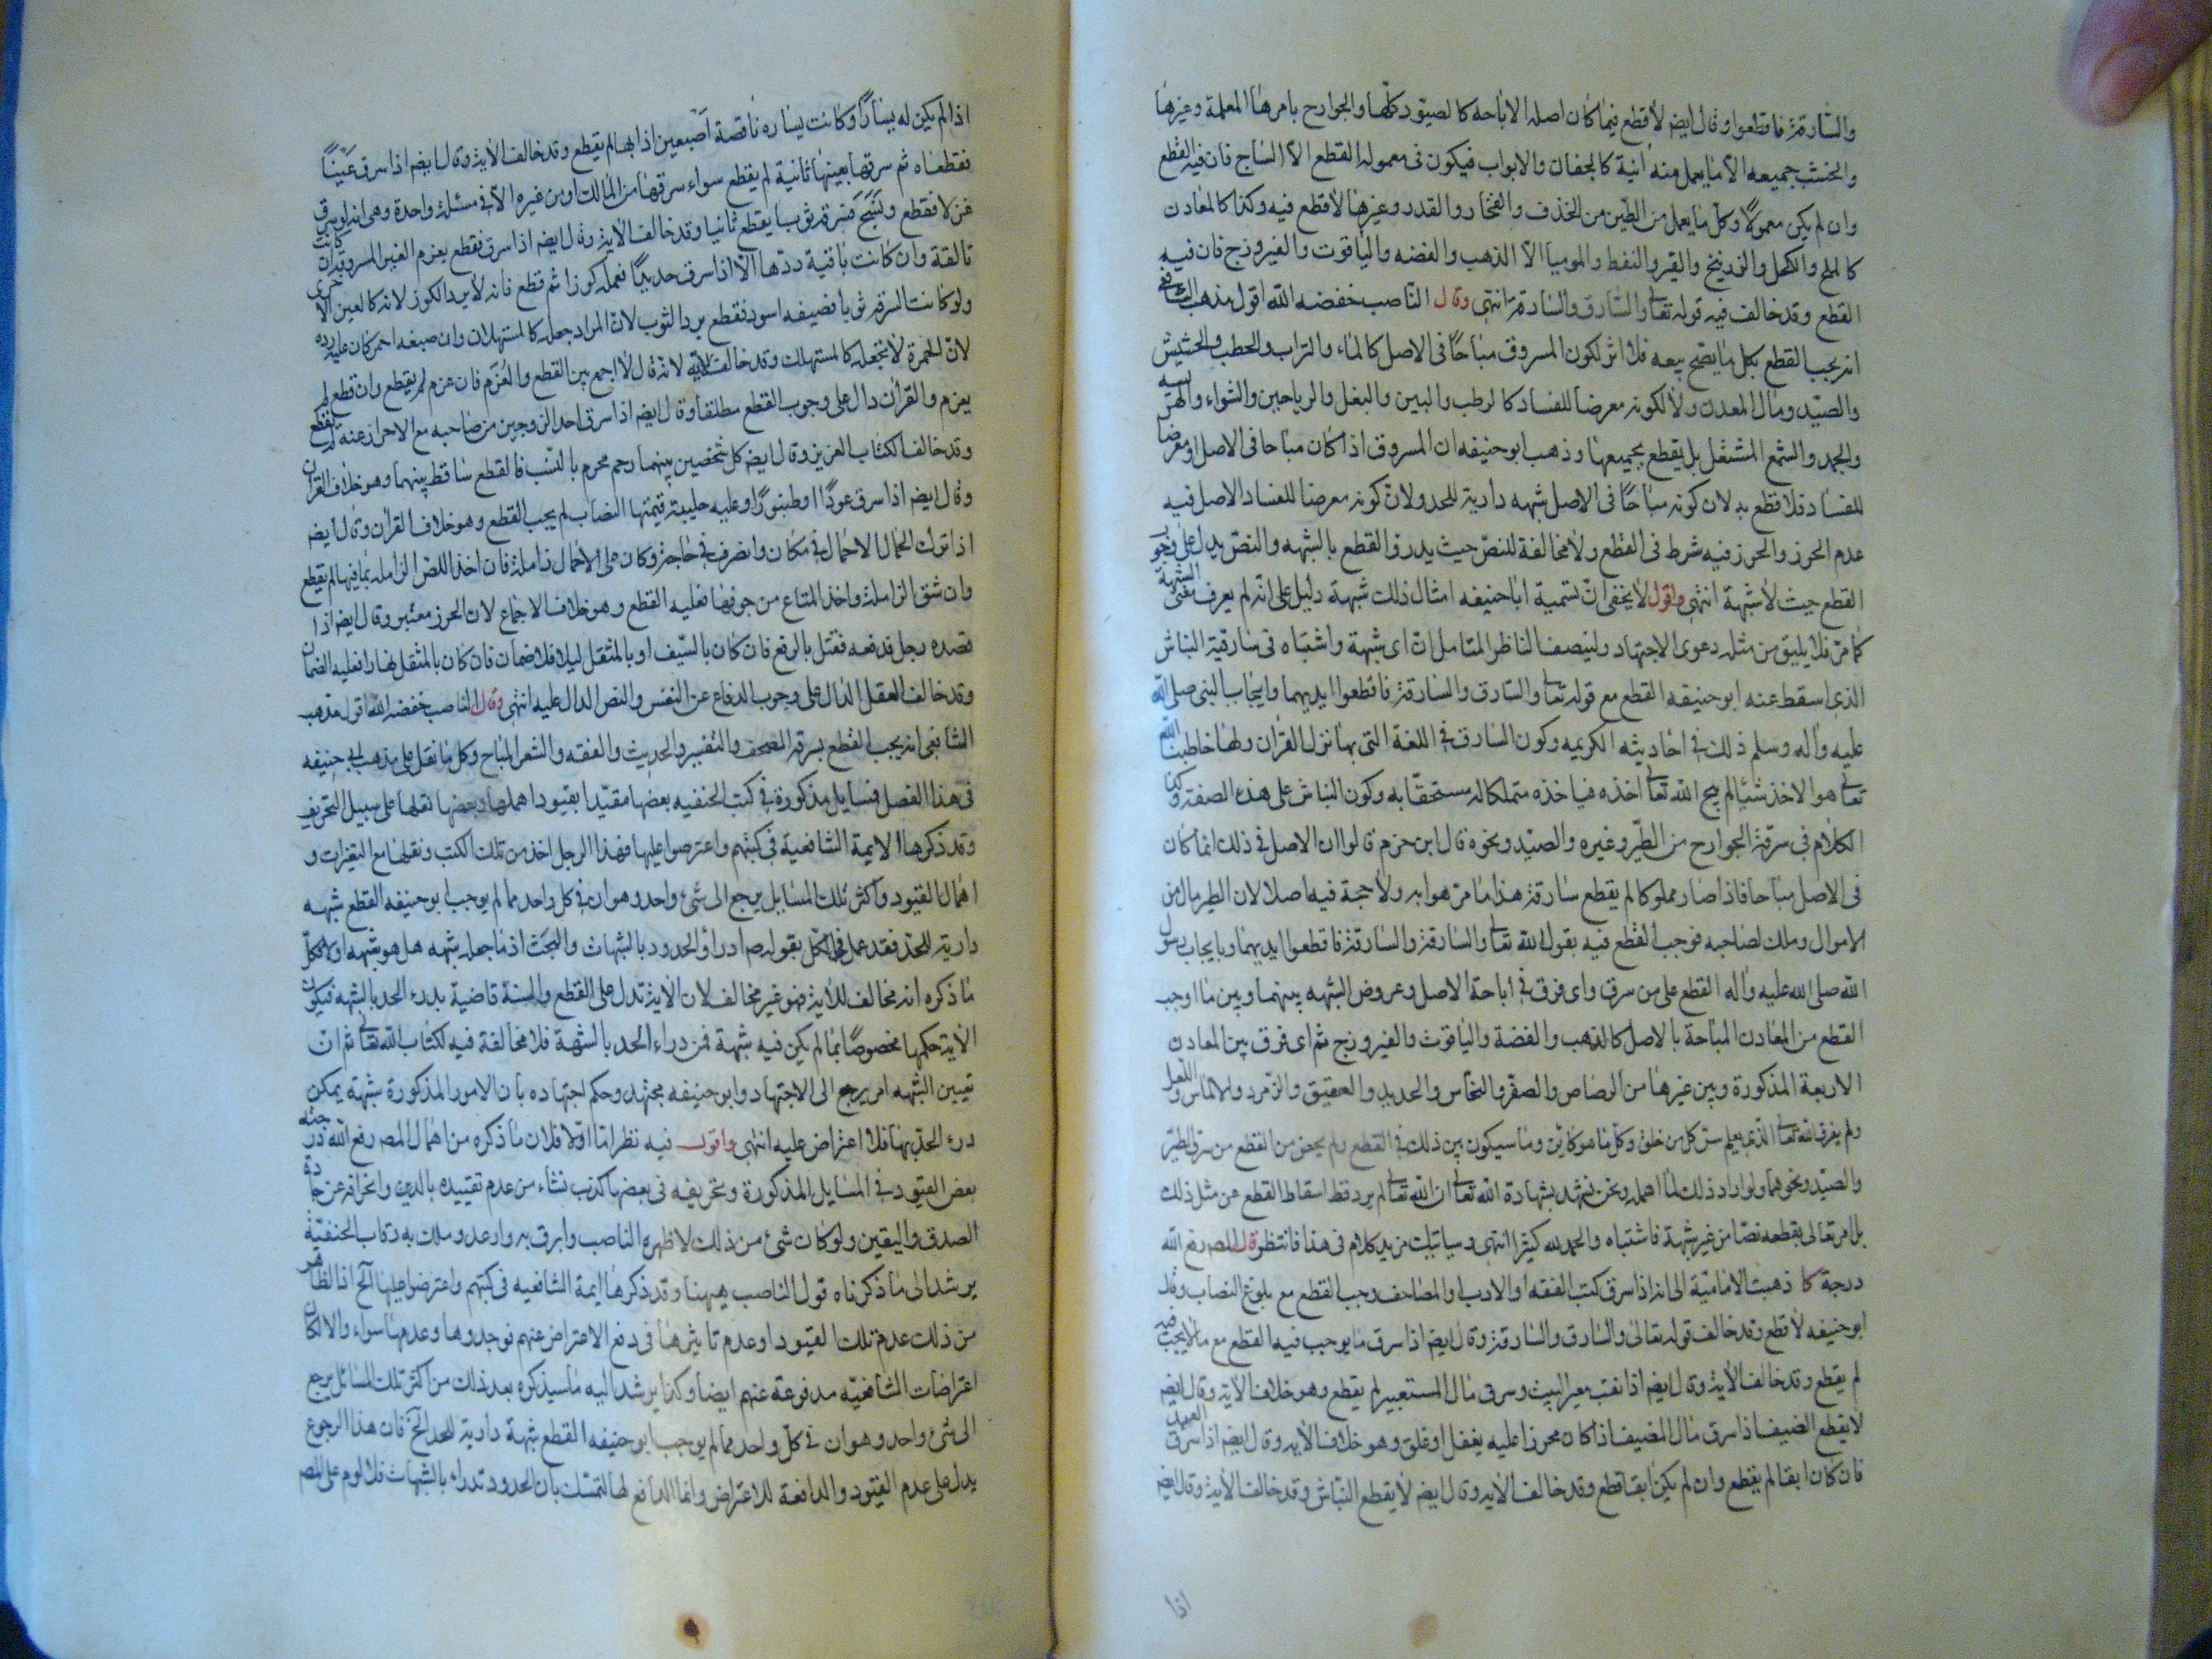 والسارقة فاقطعوا وقال ايضه لا قطع فيما كان اصله الاباحه كالصيود كلها والجوارح باسرها المعلمة وغيرها
والخشب جميعه الا ما يعمل منه انية كالجفان والابواب فيكون في معموله القطع الا الساج فان فيه القطع
وان لم يكن معمولا وكل ما يعمل من الطين من الخذف والفخار والقدور وغيرها لا قطع فيه وكذا كالمعادن
كالملح والكحل والزرنيخ والقير والنفط والموميا الا الذهب والفضه والياقوت والفيروزج فان فيه
القطع وقد خالف فيه قوله تعالى والسارق والسارقة انتهى وقال الناصب خفضه الله اقول مذهب الشافعي
انه يجب القطع بكل ما يصح بيعه فلا اثر لكون المسروق مباحا في الاصل كالماء والتراب والحطب والحشيش
والصيد ومال المعدن ولا لكونه معرضا للفساد كالرطب والبين والبغل والرياحين والشواء والهريسه
والجمد والشمع المشتعل بل يقطع بجميعها وذهب ابو حنيفه ان المسروق اذا كان مباحا في الاصل او معرضا
للفساد فلا قطع به لان كونه مباحا في الاصل شبهه دارية للحد ولان كونه معرضا للفساد الاصل فيه
عدم الحرز والحرز فيه شرط في القطع ولا مخالفة للنص حيث يدرؤ القطع بالشبهه والنص يدل على وجوب
القطع حيث لا شبهة انتهى واقول لا يخفى ان تسمية ابا حنيفه امثال ذلك شبهة دليل على انه لم يعرف معنى الشبهة
كما مر فلا يليق من مثله دعوى الاجتهاد ولينصف الناظر المتامل ان اى شبهة واشتباه في سارقية النباش
الذي اسقط عنه ابو حنيفه القطع مع قوله تعالى والسارق والسارقة فاقطعوا ايديهما وايجاب النبي صلى الله
عليه واله وسلم ذلك في احاديثه الكريمه وكون السارق في اللغة التي بها نزل القران ولها خاطبنا الله
تعالى هو الاخذ شيئا لم يبح الله تعالى اخذه فياخذه متملكا له مستحقا به وكون النباش على هذه الصفة وكذا
الكلام في سرقة الجوارح من الطير وغيره والصيد ونحوه قال ابن حزم قالوا ان الاصل في ذلك انما كان
في الاصل مباحا فاذا صار مملوكا لم يقطع سارقة هذا ما مر هوابه ولا حجة فيه اصلا لان الطير مال من
الاموال وملك لصاحبه فوجب القطع فيه بقول الله تعالى والسارق والسارقة فاقطعوا ايديهما وبايجاب رسول
الله صلى الله عليه واله القطع على من سرق واى فرق في اباحة الاصل وعروض الشبهه بينهما وبين ما اوجب
القطع من المعادن المباحة بالاصل كالذهب والفضة والياقوت والفيروزج ثم اى فرق بين المعادن
الاربعة المذكورة وبين غيرها من الرصاص والصفر والنحاس والحديد والعقيق والزمرد والالماس واللعل
ولم يفرق الله تعالى الذي يعلم سر كل من خلق وكل ما هو كاين وما سيكون بين ذلك في القطع ولم يخص من القطع من سرق الطير
والصيد ونحوهما ولو اراد ذلك لما اهمله ونحن نشهد بشهادة الله تعالى ان الله تعالى لم يرد قط اسقاط القطع عن مثل ذلك
بل امر تعالى بقطعه نصا من غير شبهة فاشتباه والحمد لله كثيرا انتهى وسياتيك مزيد كلام في هذا فانتظره قال المصر رفع الله
درجة كا ذهبت الامامية الى انه اذا سرق كتب الفقه او الادب او المصاحف وجب القطع مع بلوغ النصاب وقال
ابو حنيفه لا قطع وقد خالف قوله تعالى والسارق والسارقة وقال ايضه اذا سرق ما يوجب فيه القطع مع ما لا يجب فيه
لم يقطع وقد خالف الاية وقال ايضه اذا نقب معير البيت وسرق مال المستعير لم يقطع وهو خلاف الاية وقال ايضه
لا يقطع الضيف اذا سرق مال المضيف اذا كان محرزا عليه بقفل او غلق وهو خلاف الايه وقال ايضه اذا سرق العبد
فان كان ابقا لم يقطع وان لم يكن ابقا قطع وقد خالف الايه وقال ايضه لا يقطع النباش وقد خالف الاية وقال ايضه
اذا
اذا لم يكن له يسارا وكانت يساره ناقصة اصبعين اذ ابهام لم يقطع وقد خالف الاية وقال ايضه اذا سرق عينا
فقطعناه ثم سرقها بعينها ثانية لم يقطع سواء سرقها من المالك او من غيره الا في مسئلة واحدة وهى انه لو سرق
غزلا فقطع ونسج فسرقه ثوبا يقطع ثانيا وقد خالف الاية وقال ايضه اذا سرق فقطع يغرم العين المسروقة ان كانت
تالفة وان كانت باقية ردها الا اذا سرق حديدا فعمله كوزا ثم قطع فانه لا يرد الكوز لانه كالعين الاخرى
ولو كانت السرقة ثوبا فصبغه اسود فقطع يرد الثوب لان السواد جعله كالمستهلك وان صبغه احمر كان عليه رده
لان الحمرة لا تجعله كالمستهلك وقد خالف الاية لانه قال لا اجمع بين القطع والغرم فان غرم لم يقطع وان قطع لم
يغرم والقران دال على وجوب القطع مطلقا وقال ايضه اذا سرق احد الزوجين من صاحبه مع الاحراز عنه لم يقطع
وقد خالف الكتاب العزيز وقال ايضه كل شخصين بينهما رحم محرم بالنسب فالقطع ساقط بينهما وهو خلاف القران
وقال ايضه اذا سرق عودا او طنبورا وعليه حلية قيمتها النصاب لم يجب القطع وهو خلاف القران وقال ايضه
اذا ترك الجمال الاحمال في مكان وانصرف في حاجة وكان على الاحمال زاملة فان اخذ اللص الزاملة بما فيها لم يقطع
وان شق الزاملة واخذ المتاع من جوفها فعليه القطع وهو خلاف الاجماع لان الحرز معتبر وقال ايضه اذا
قصده رجل فدفعه فقتل بالدفع فان كان بالسيف او بالمثقل ليلا فلا ضمان فان كان بالمثقل نهارا فعليه الضمان
وقد خالف العقل الدال على وجوب الدفاع عن النفس والنص الدال عليه انتهى وقال الناصب خفضه الله اقول مذهب
الشافعي انه يجب القطع بسرقة المصحف والتفسير والحديث والفقه والشعر المباح وكل ما نقل على مذهب ابي حنيفه
في هذا الفصل فمسايل مذكورة في كتب الحنفيه بعضها مقيدا بقيود اهملها وبعضها نقلها على سبيل التحريف
وقد ذكرها الايمة الشافعية في كتبهم واعترضوا عليها فهذا الرجل اخذ من تلك الكتب ونقلها مع التغيرات و
اهمال القيود واكثر تلك المسايل يرجع الى شئ واحد وهو ان في كل واحد مما لم يوجب ابو حنيفه القطع شبهه
دارية للحد فقد عمل في الكل بقوله صم ادرأوا الحدود بالشبهات والبحث اذ ما جعله شبهه هل هو شبهه او لا فكل
ما ذكره انه مخالف للاية فهو غير مخالف لان الاية تدل على القطع والسنة قاضية بدرء الحد بالشبهه فيكون
الاية حكمها مخصوصا بما لم يكن فيه شبهة فمن دراء الحد بالشبهة فلا مخالفة فيه لكتاب الله تعالى ثم ان
تعيين الشبهه امر يرجع الى الاجتهاد وابو حنيفه مجتهد وحكم اجتهاده بان الامور المذكورة شبهة يمكن
درء الحد بها فلا اعتراض عليه انتهى واقول فيه نظر اما اولا فلان ما ذكره من اهمال المصر رفع الله درجته
بعض القيود في المسايل المذكورة وتحريفه في بعضها كذب نشاء من عدم تقييده بالدين وانحرافه عن جادة
الصدق واليقين ولو كان شئ من ذلك لاظهره الناصب وابرق به وارعد وملك به رقاب الحنفية
يرشد الى ما ذكرناه قول الناصب ههنا وقد ذكرها ايمة الشافعيه في كتبهم واعترضوا عليها الخ اذ الظاهر
من ذلك عدم تلك القيود او عدم تاثيرها في دفع الاعتراض عنهم فوجدوها وعدمها سواء والا لكان
اعتراضات الشافعيه مدفوعة عنهم ايضا وكذا يرشد اليه ما سيذكره بعد ذلك من اكثر تلك المسائل يرجع
الى شئ واحد وهو ان في كل واحد مما لم يوجب ابو حنيفه القطع شبهة دارية للحد الخ فان هذا الرجوع
يدل على عدم القيود والدافعة للاعتراض وانما الدافع لها التمسك بان الحدود تدراء بالشبهات فلا لوم على المصر